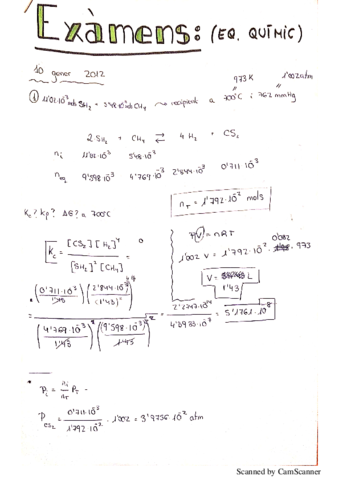 Exàmens: (EQ. QUÍMIC)
10 gener 2012
973K 1'002atm
① 11'02·10⁻³ mols SH₂ + 5'48·10⁻³ mol CH₄ → recipient a 700ºC i 762 mmHg
2 SH₂ + CH₄ ⇄ 4 H₂ + CS₂
nᵢ 11'02·10⁻³ 5'48·10⁻³
n_eq 9'598·10⁻³ 4'769·10⁻³ 2'844·10⁻³ 0'711·10⁻³
n_T = 1'792·10⁻² mols
Kc? Kp? ΔG? a 700ºC
PV = nRT
0'082
1'002 V = 1'792·10⁻² · 973
V = L
1'43
Kc = [CS₂][H₂]⁴ / [SH₂]²[CH₄] =
= (0'711·10⁻³ / 1'43) (2'844·10⁻³ / 1'43)⁴
(4'769·10⁻³ / 1'43) (9'598·10⁻³ / 1'43)²
= = 5'1761·10⁻⁸
Pᵢ = nᵢ / n_T P_T -
P_CS₂ = 0'711·10⁻³ / 1'792·10⁻² · 1'002 = 3'9756·10⁻² atm
Scanned by CamScanner